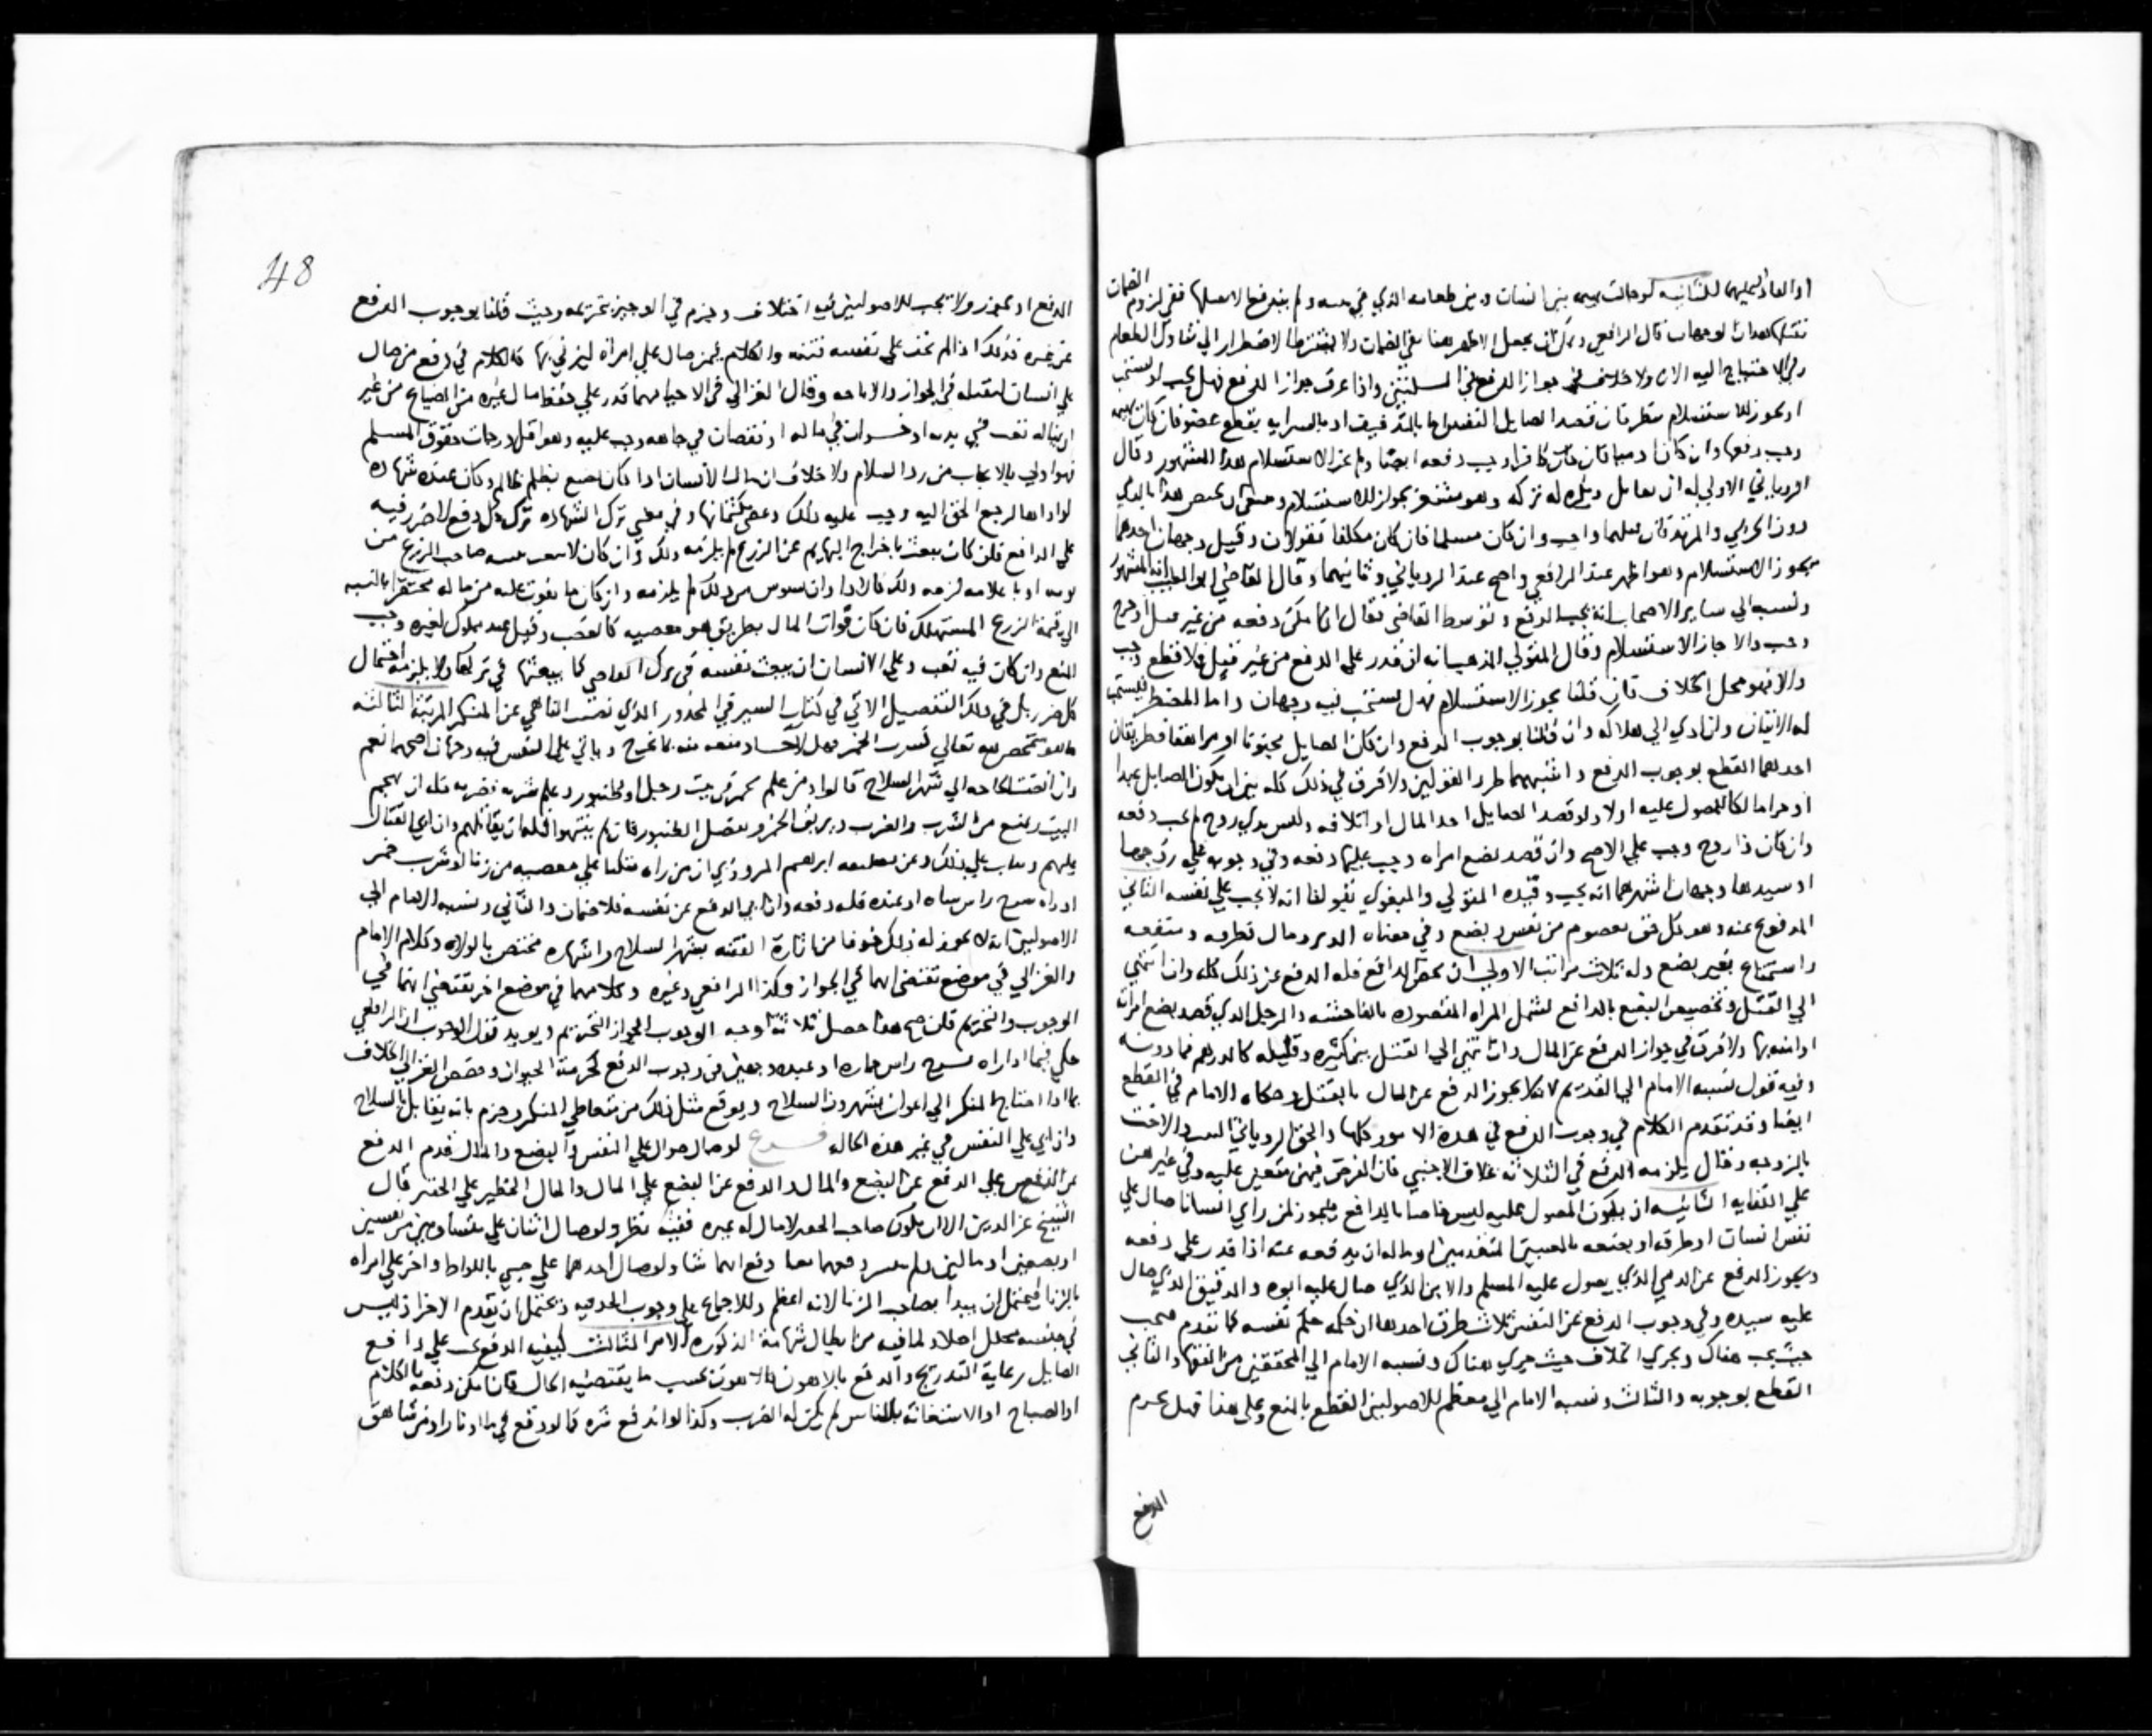 او العادة لمثلها الثانية لو حالت بهيمة بين انسان وبين طعامه الذي في يده ولم يندفع الا بقتلها ففي لزوم الضمان
بقتلها وجهان قال الرافعي ويمكن ان يجعل الاظهر هنا نفي الضمان ولا يشترط الاضطرار الي تناول الطعام
الاحتياج اليه الان ولا خلاف في جواز الدفع في المسلتين واذا عرف جواز الدفع فهل يجب او يستحب
او يجوز الاستسلام نظر فان قصد الصايل النفس اما بالتذفيف او بالسراية بقطع عضو فان كان بهيمة
وجب دفعها وان كان ادميا فان كان كافرا وجب دفعه ايضا ولم يجز الاستسلام هذا المشهور وقال
الروياني الاولي له ان يقاتل ويكره له تركه وهو مشعر بجواز الاستسلام وينبغي ان يختص هذا بالذمي
دون الحربي والمرتد فان قتلهما واجب وان كان مسلما فان كان مكلفا فقولان وقيل وجهان احدهما
يجوز الاستسلام وهو اظهر عند الرافعي واصح عند الروياني وثانيهما وقال القاضي ابو الطيب انه المشهور
ونسبه الي ساير الاصحاب انه يجب الدفع وتوسط القاضي فقال ان امكن دفعه من غير قتل او جرح
وجب والا جاز الاستسلام وقال المتولي المذهب انه ان قدر علي الدفع من غير قتل ولا قطع وجب
والا فهو محل الخلاف فان قلنا يجوز الاستسلام فهل يستحب فيه وجهان واما المضطر فيستحب
له الاتيان وان ادي الي هلاكه وان قلنا بوجوب الدفع وان كان الصايل مجنونا او مراهقا فطريقان
احدهما القطع بوجوب الدفع واشبههما طرد القولين ولا فرق في ذلك كله بين ان يكون الصايل عبدا
او حرا مالكا للمصول عليه او لا ولو قصد الصايل اخذ المال او اتلافه وليس بذي روح لم يجب دفعه
وان كان ذا روح وجب علي الاصح وان قصد بضع امراه وجب عليها دفعه وفي وجوبه علي زوجها
او سيدها وجهان اشهرهما انه يجب وقيده المتولي والبغوي بقولنا انه لا يجب علي نفسه الثاني
المدفوع عنه وهو كل حق معصوم من نفس وبضع وفي معناه الدبر ومال وطرف ومنفعه
واستمتاع بغير بضع وله ثلاث مراتب الاولي ان يخص الدافع فله الدفع عن ذلك كله وان انتهي
الي القتل وتخصيص البضع بالدافع لتشمل المراه المقصوده بالفاحشه والرجل الذي قصد بضع امراته
او ابنته ولا فرق في جواز الدفع عن المال وان انتهي الي القتل بين كثيره وقليله كالدرهم فما دونه
وفيه قول نسبه الامام الي القديم انه لا يجوز الدفع عن المال بالقتل وحكاه الامام في القطع
ايضا وقد تقدم الكلام في وجوب الدفع في هذه الامور كلها والحق الروياني البنت والاخت
بالزوجه وقال يلزمه الدفع في الثلاثه بخلاف الاجنبي فان الفرض فيهن متعين عليه وفي غيرهن
علي الكفايه الثانيه ان يكون المصول عليه ليس خاصا بالدافع فيجوز لمن راي انسانا صال علي
نفس انسان او طرفه او بضعه بالمعنيين المتقدمين او ماله ان يدفعه عنه اذا قدر علي دفعه
ويجوز الدفع عن الذمي الذي يصول عليه المسلم والابن الذي صال عليه ابوه والرقيق الذي صال
عليه سيده وفي وجوب الدفع عن النفس ثلاث طرق احدها ان حكمه حكم نفسه كما تقدم فيجب
حيث يجب هناك ويجري الخلاف حيث جري هناك ونسبه الامام الي المحققين من الفقها والثاني
القطع بوجوبه والثالث ونسبه الامام الي معظم الاصوليين القطع بالمنع وعلي هذا قيل يحرم
الدفع
48
الدفع او يجوز ولا يجب للاصوليين فيه اختلاف وجزم في الوجيز بتحريمه وحيث قلنا بوجوب الدفع
عن غيره فذلك اذا لم يخف علي نفسه فتنه والكلام فيمن صال علي امراة ليزني بها كالكلام في دفع من صال
علي انسان ليقتله في الجواز والاباحه وقال الغزالي في الاحيا مهما قدر علي حفظ مال غيره من الضياع من غير
ان يناله تعب في بدنه او خسران في ماله او نقصان في جاهه وجب عليه وهو اقل درجات حقوق المسلم
فهو اولي بالايجاب من رد السلام ولا خلاف ان مال الانسان اذا كان يضيع بظلم ظالم وكان عنده شهاده
لو اداها لرجع الحق اليه وجب عليه ذلك وعصي بكتمانها وفي معني ترك الشهاده ترك كل دفع لا ضرر فيه
علي الدافع فلو كان يبعث باخراج البهايم عن الزرع لم يلزمه ذلك وان كان لا يتعب بتنبيه صاحب الزرع من
نومه او باعلامه لزمه ذلك فان
الي قيمة الزرع المستهلك فان كان فوات المال بطريق هو معصيه كالغصب وقتل عبد مملوك لغيره وجب
المنع وان كان فيه تعب وعلي الانسان ان يبعث نفسه في ترك المعاصي كما يبعثها في ترك ولا يلزمه احتمال
كل ضرر بل في ذلك التفصيل الاتي في كتاب السير في المحذور الذي ننهي الناهي عن المنكر المرتبة الثالثه
ما هو متمحض لله تعالي كشرب الخمر فهل للاحاد منعه منه بما يجرح وياتي علي النفس فيه وجهان اصحهما نعم
وان افضت الحاجه الي شهر السلاح قالوا ومن علم بخمر في بيت رجل او طنبور وعلم شربه وضربه فله ان يهجم
البيت ويمنع من الشرب والضرب ويريق الخمر ويفصل الطنبور فان لم ينتهوا فله ان يقاتلهم وان اتي القتال
عليهم ويثاب علي ذلك وعن تعليقه ابراهيم المروذي ان من راه مكبا علي معصيه من زنا او شرب خمر
او راه يشدخ راس شاه او عبده فله دفعه وان اتي الدفع عن نفسه فلا ضمان والثاني ونسبه الامام الي
الاصوليين انه لا يجوز له ذلك خوفا من اثارة الفتنه بشهر السلاح واشهاره مختص بالولاه وكلام الامام
والغزالي في موضع تقتضي انهما في الجواز وكذا الرافعي وغيره وكلامهما في موضع اخر تقتضي انهما في
الوجوب والتحريم فان صح هذا حصل ثلاثة اوجه الوجوب الجواز التحريم ويويد نقل الوجوب ان الرافعي
حكي فيما اذا راه يشدخ راس حماره او عبده وجهين في وجوب الدفع لحرمة الحيوان وخصص الغزالي الخلاف
بما اذا احتاج المنكر الي اعوان يشهرون السلاح ويوقع مثل ذلك من متعاطي المنكر وجزم بانه يقاتل بالسلاح
وان اتي علي النفس في غير هذه الحاله فرع لو صال صوال علي النفس والبضع والمال قدم الدفع
عن النفس علي الدفع عن البضع والمال والدفع عن البضع علي المال والمال الخطير علي الحقير قال
الشيخ عز الدين الا ان يكون صاحب الحقير لا مال له غيره ففيه نظر ولو صال اثنان علي متساويين من نفسين
او بضعين او مالين ولم يتيسر دفعهما معا دفع ايهما شا ولو صال احدهما علي صبي باللواط واخر علي امراه
بالزنا فيحتمل ان يبدا بصاحب الزنا لانه اعظم وللاجماع علي وجوب الحد فيه ويحتمل ان يقدم الاخر اذ ليس
في جنسه محلل اصلا ولما فيه من ابطال شهامة الذكوره الامر الثالث كيفيه الدفع علي دافع
الصايل رعاية التدريج والدفع بالاهون فالاهون بحسب ما يقتضيه الحال فان امكن دفعه بالكلام
او الصياح او الاستغاثة بالناس لم يكن له الضرب وكذا لو اندفع شره كما لو وقع في ما او نار او من شاهق